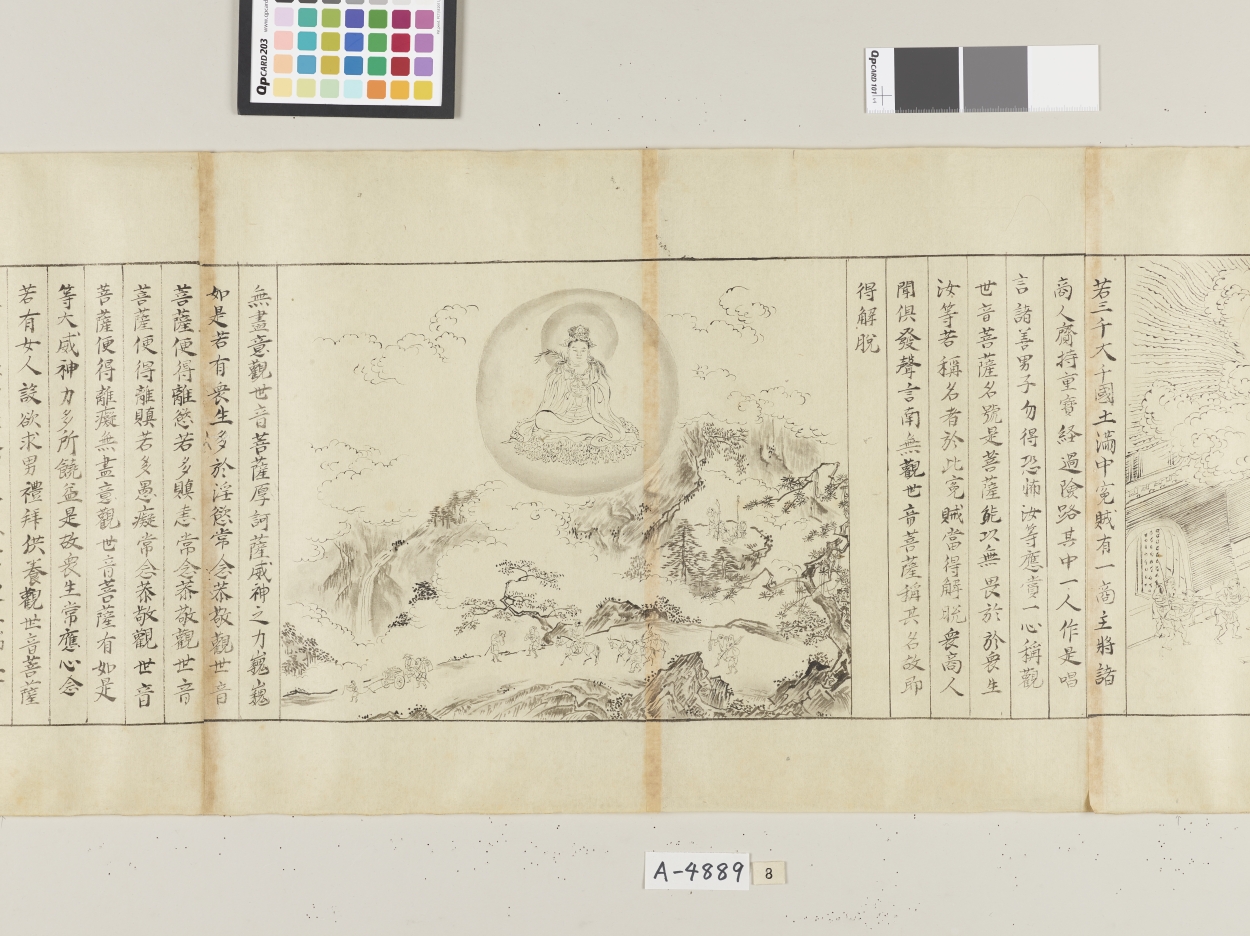 若三千大千國土滿中寃賊有一商主將諸
商人齎持重寳経過險路其中一人作是唱
言諸善男子勿得恐怖汝等應當一心稱觀
世音菩薩名號是菩薩能以無畏於於衆生
汝等若稱名者於此寃賊當得解脱衆商人
聞俱發聲言南無觀世音菩薩稱其名故即
得解脱
無盡意觀世音菩薩摩訶薩威神之力巍巍
如是若有衆生多於淫慾常念恭敬觀世音
菩薩便得離慾若多瞋恚常念恭敬觀世音
菩薩便得離瞋若多愚癡常念恭敬觀世音
菩薩便得離癡無盡意觀世音菩薩有如是
等大威神力多所饒益是故衆生常應心念
若有女人設欲求男禮拜供養觀世音菩薩
QPCARD 203
QPCARD 101
A-4889
8